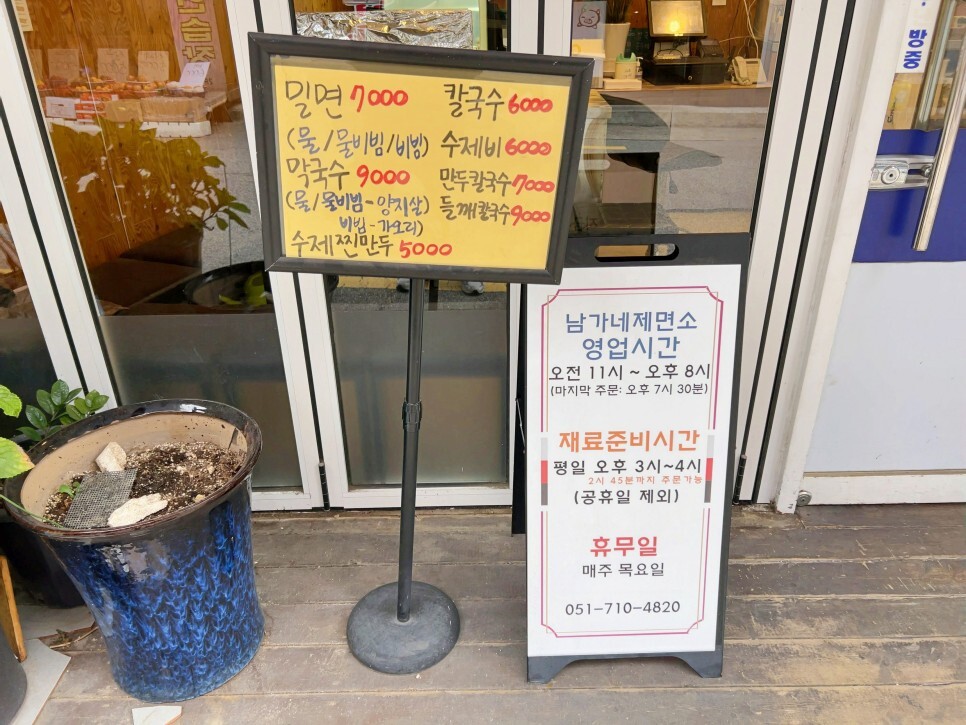 밀면 7000 칼국수 6000
(물/물비빔/비빙) 수제비 6000
막국수 9000 만두칼국수 7000
(물/물비빔-양지살) 들깨칼국수 9000
비빔-가오리)
수제찐만두 5000
남가네제면소
영업시간
오전 11시 ~ 오후 8시
(마지막 주문: 오후 7시 30분)
재료준비시간
평일 오후 3시~4시
2시 45분까지 주문가능
(공휴일 제외)
휴무일
매주 목요일
051-710-4820
방충